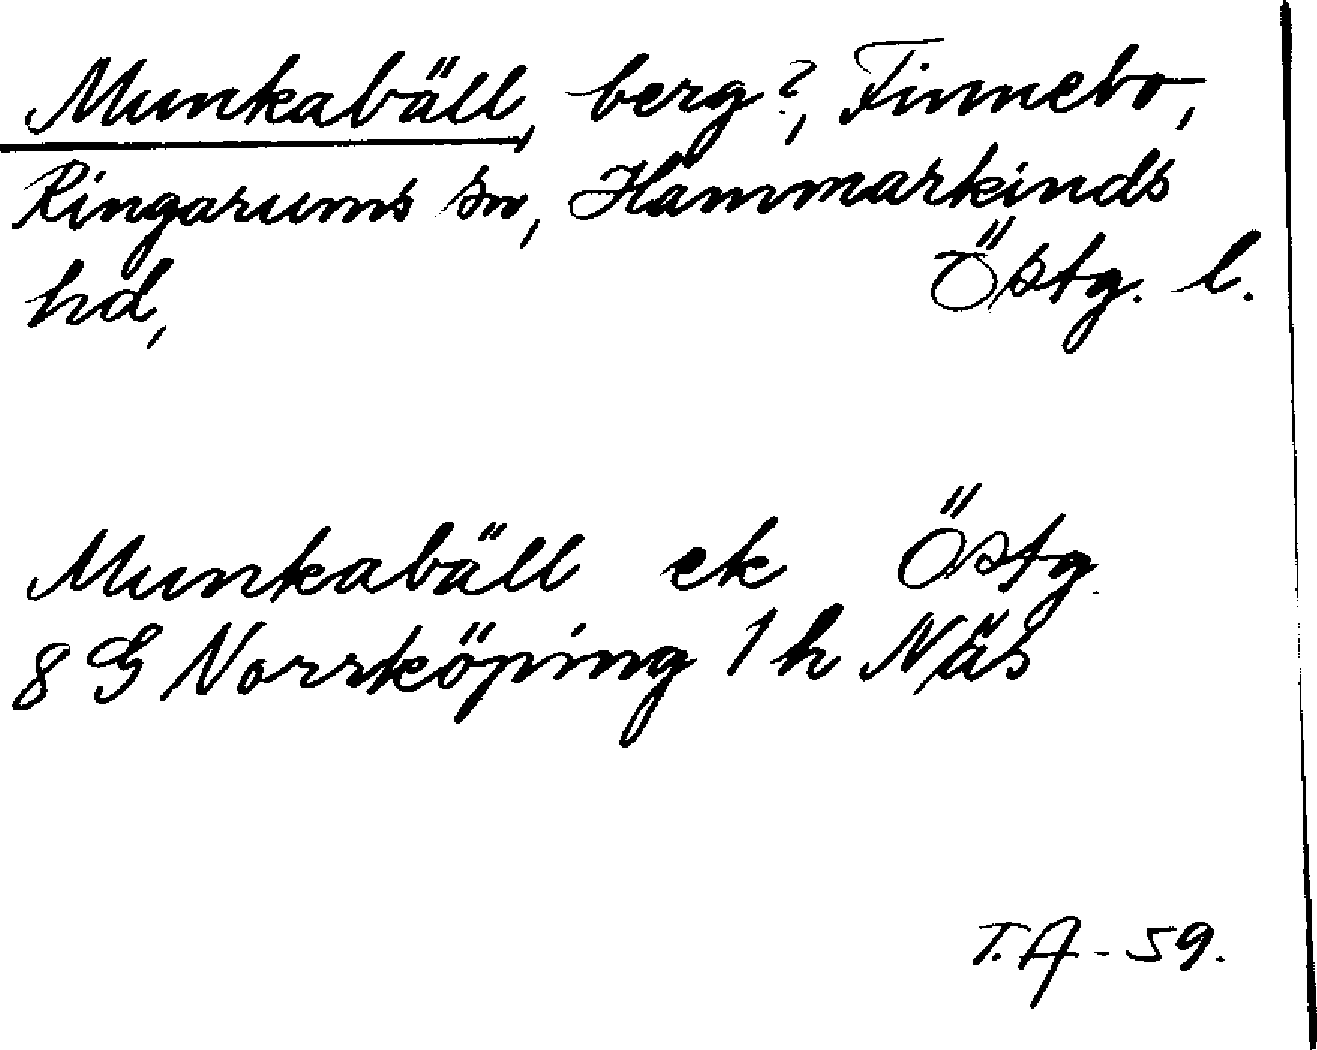 Munkabäll, berg?, Finnebo,
Ringarums sn, Hammarkinds
hd, Östg. l.
Munkabäll ek Östg.
8 G Norrköping 1 h Näs
T.A - 59.